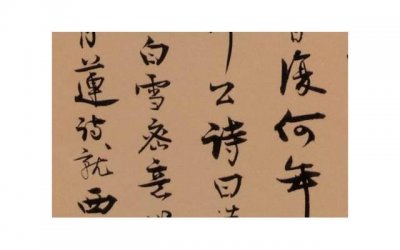 復何年
公詩曰
白雪意
蓮詩就西